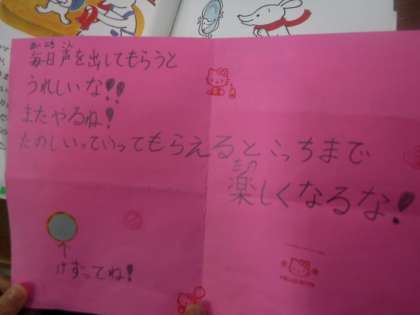 毎日声を出してもらうと
うれしいな!!
またやるね!
たのしいっていってもらえるとこっちまで
楽しくなるな!
けずってね!